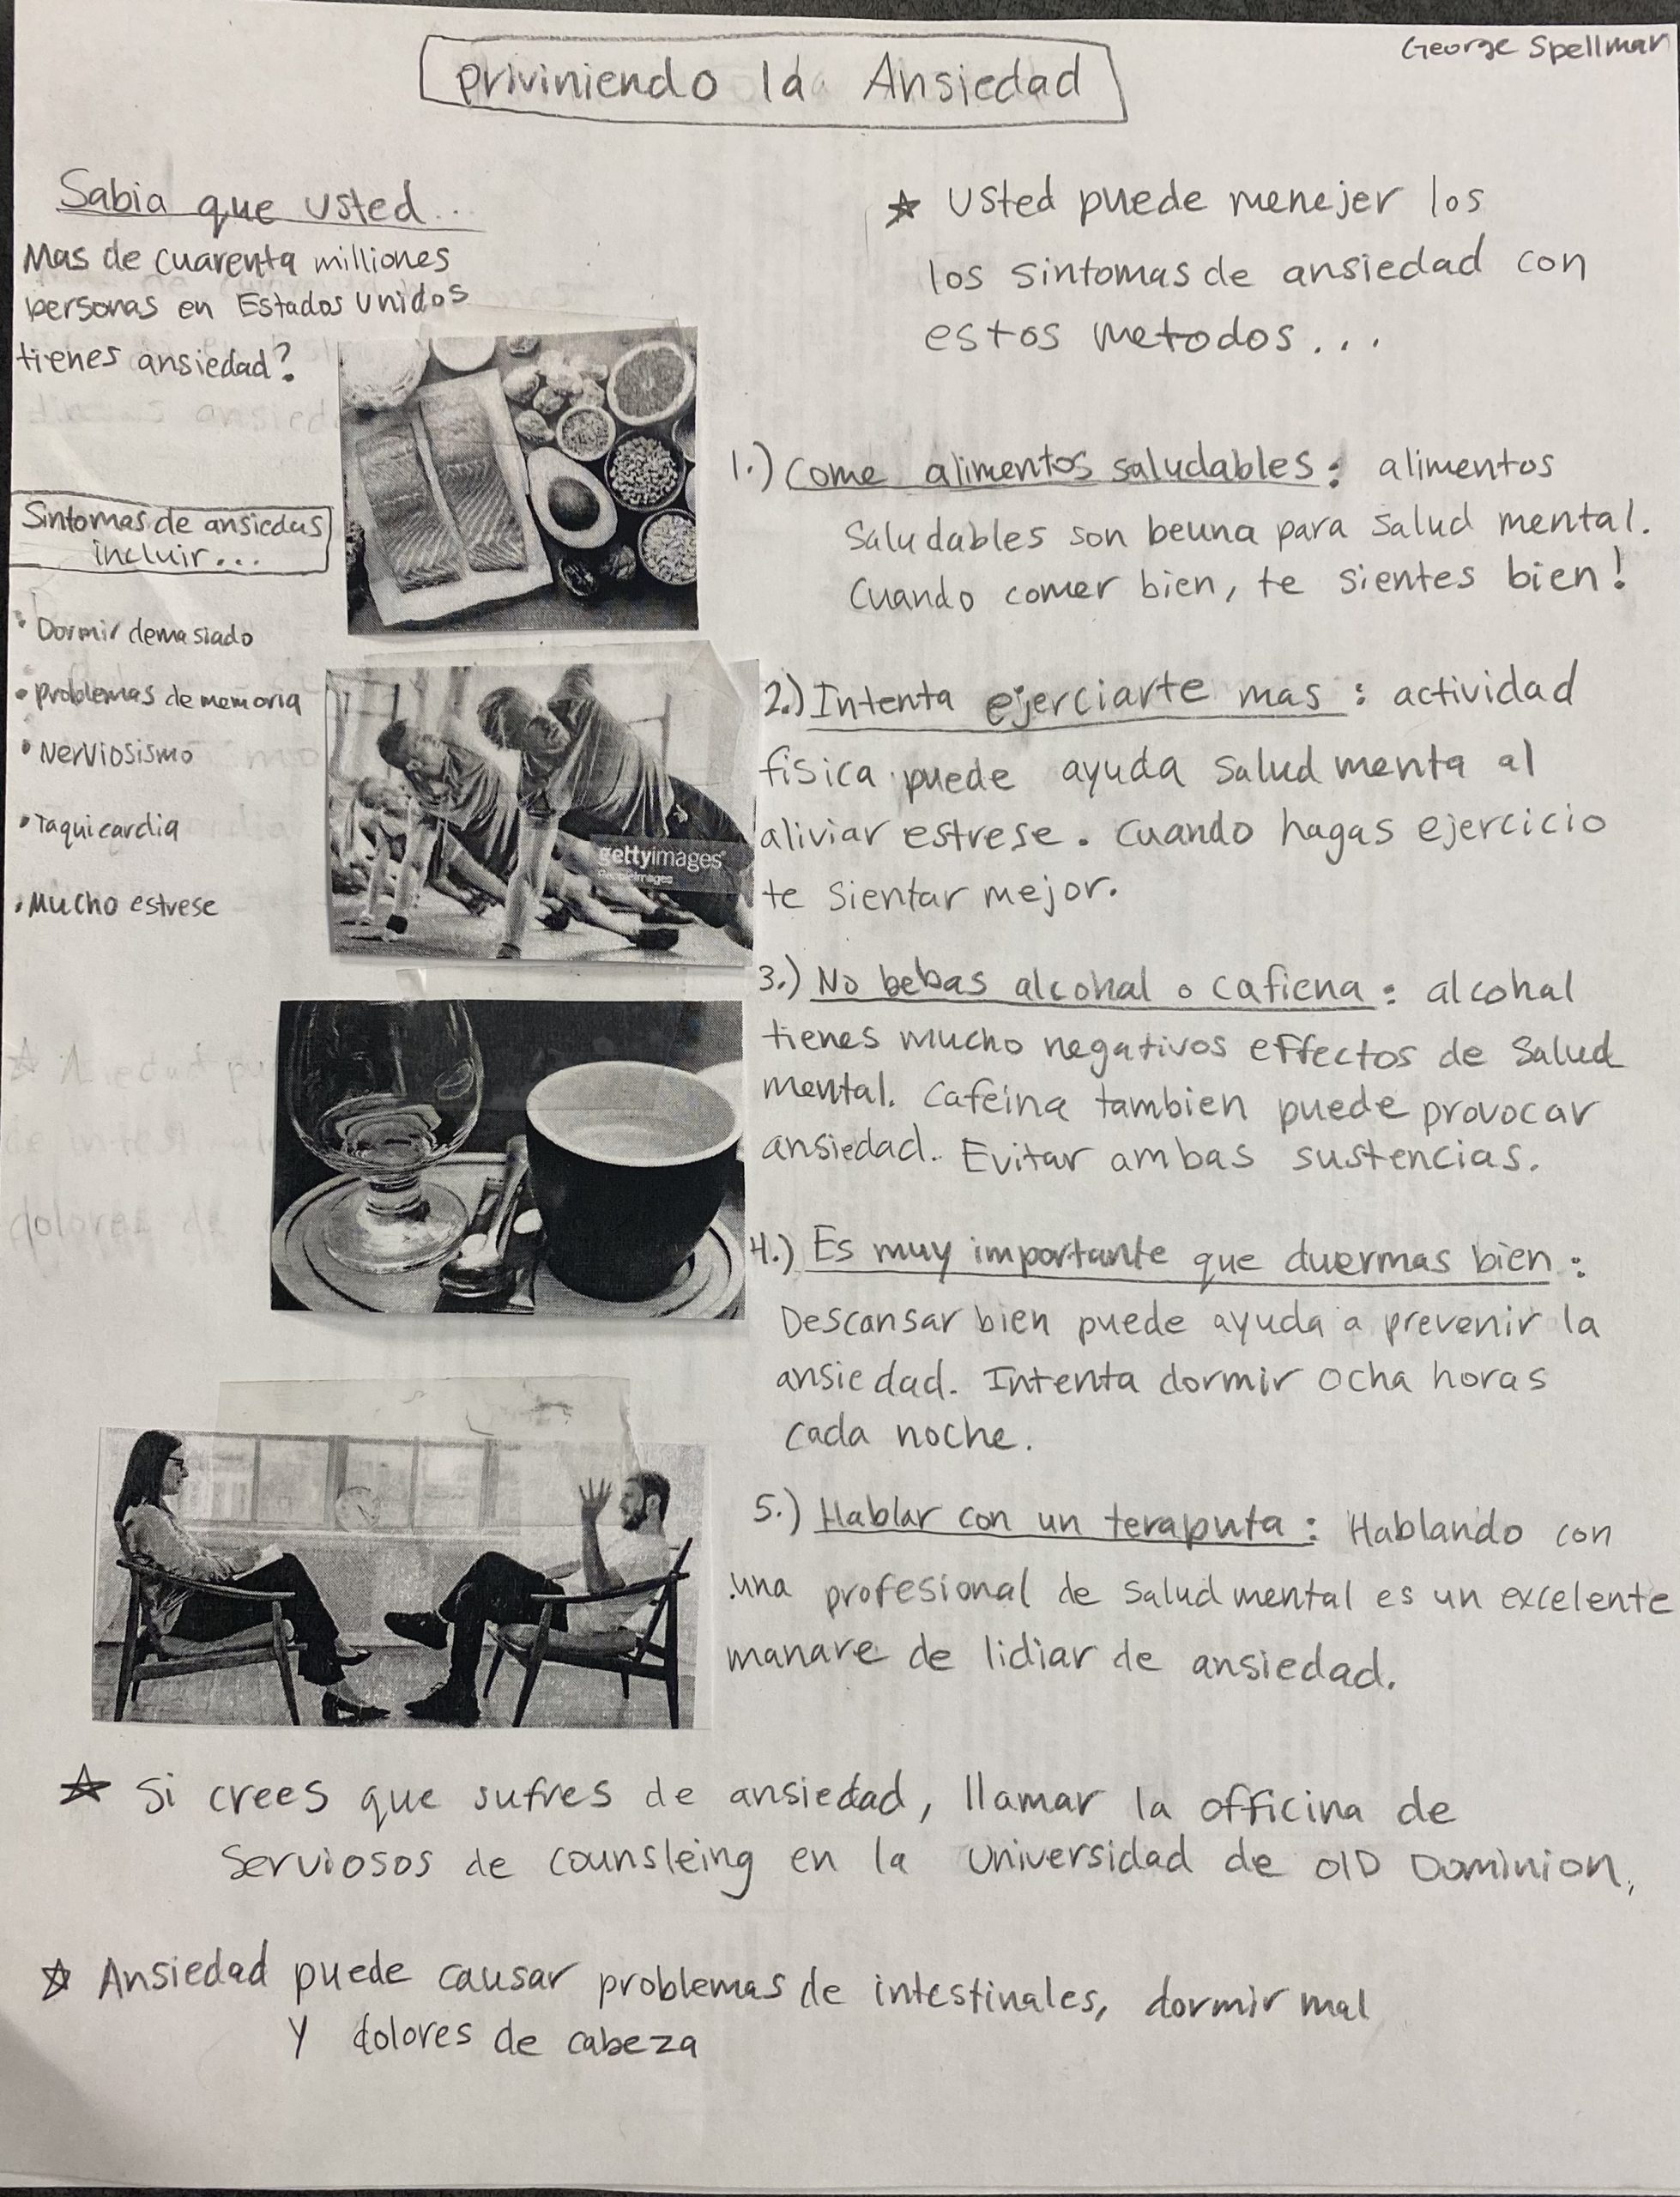 George Spellman
priviniendo la Ansiedad
Sabia que usted...
Mas de cuarenta milliones
personas en Estados Unidos
tienes ansiedad?
Sintomas de ansiedas
incluir...
• Dormir demasiado
• problemas de memoria
• Nerviosismo
• Taquicardia
• Mucho estrese
★ Usted puede menejer los
los sintomas de ansiedad con
estos metodos...
1.) Come alimentos saludables: alimentos
Saludables son beuna para salud mental.
Cuando comer bien, te sientes bien!
2.) Intenta ejerciarte mas: actividad
fisica puede ayuda salud menta al
aliviar estrese. Cuando hagas ejercicio
te sientar mejor.
gettyimages
PeopleImages
3.) No bebas alcohal o cafiena: alcohal
tienes mucho negativos effectos de salud
mental. Cafeina tambien puede provocar
ansiedad. Evitar ambas sustencias.
4.) Es muy importante que duermas bien:
Descansar bien puede ayuda a prevenir la
ansiedad. Intenta dormir ocha horas
cada noche.
5.) Hablar con un teraputa: Hablando con
una profesional de salud mental es un excelente
manare de lidiar de ansiedad.
☆ Si crees que sufres de ansiedad, llamar la officina de
Serviosos de counsleing en la Universidad de OlD Dominion.
☆ Ansiedad puede causar problemas de intestinales, dormir mal
Y dolores de cabeza